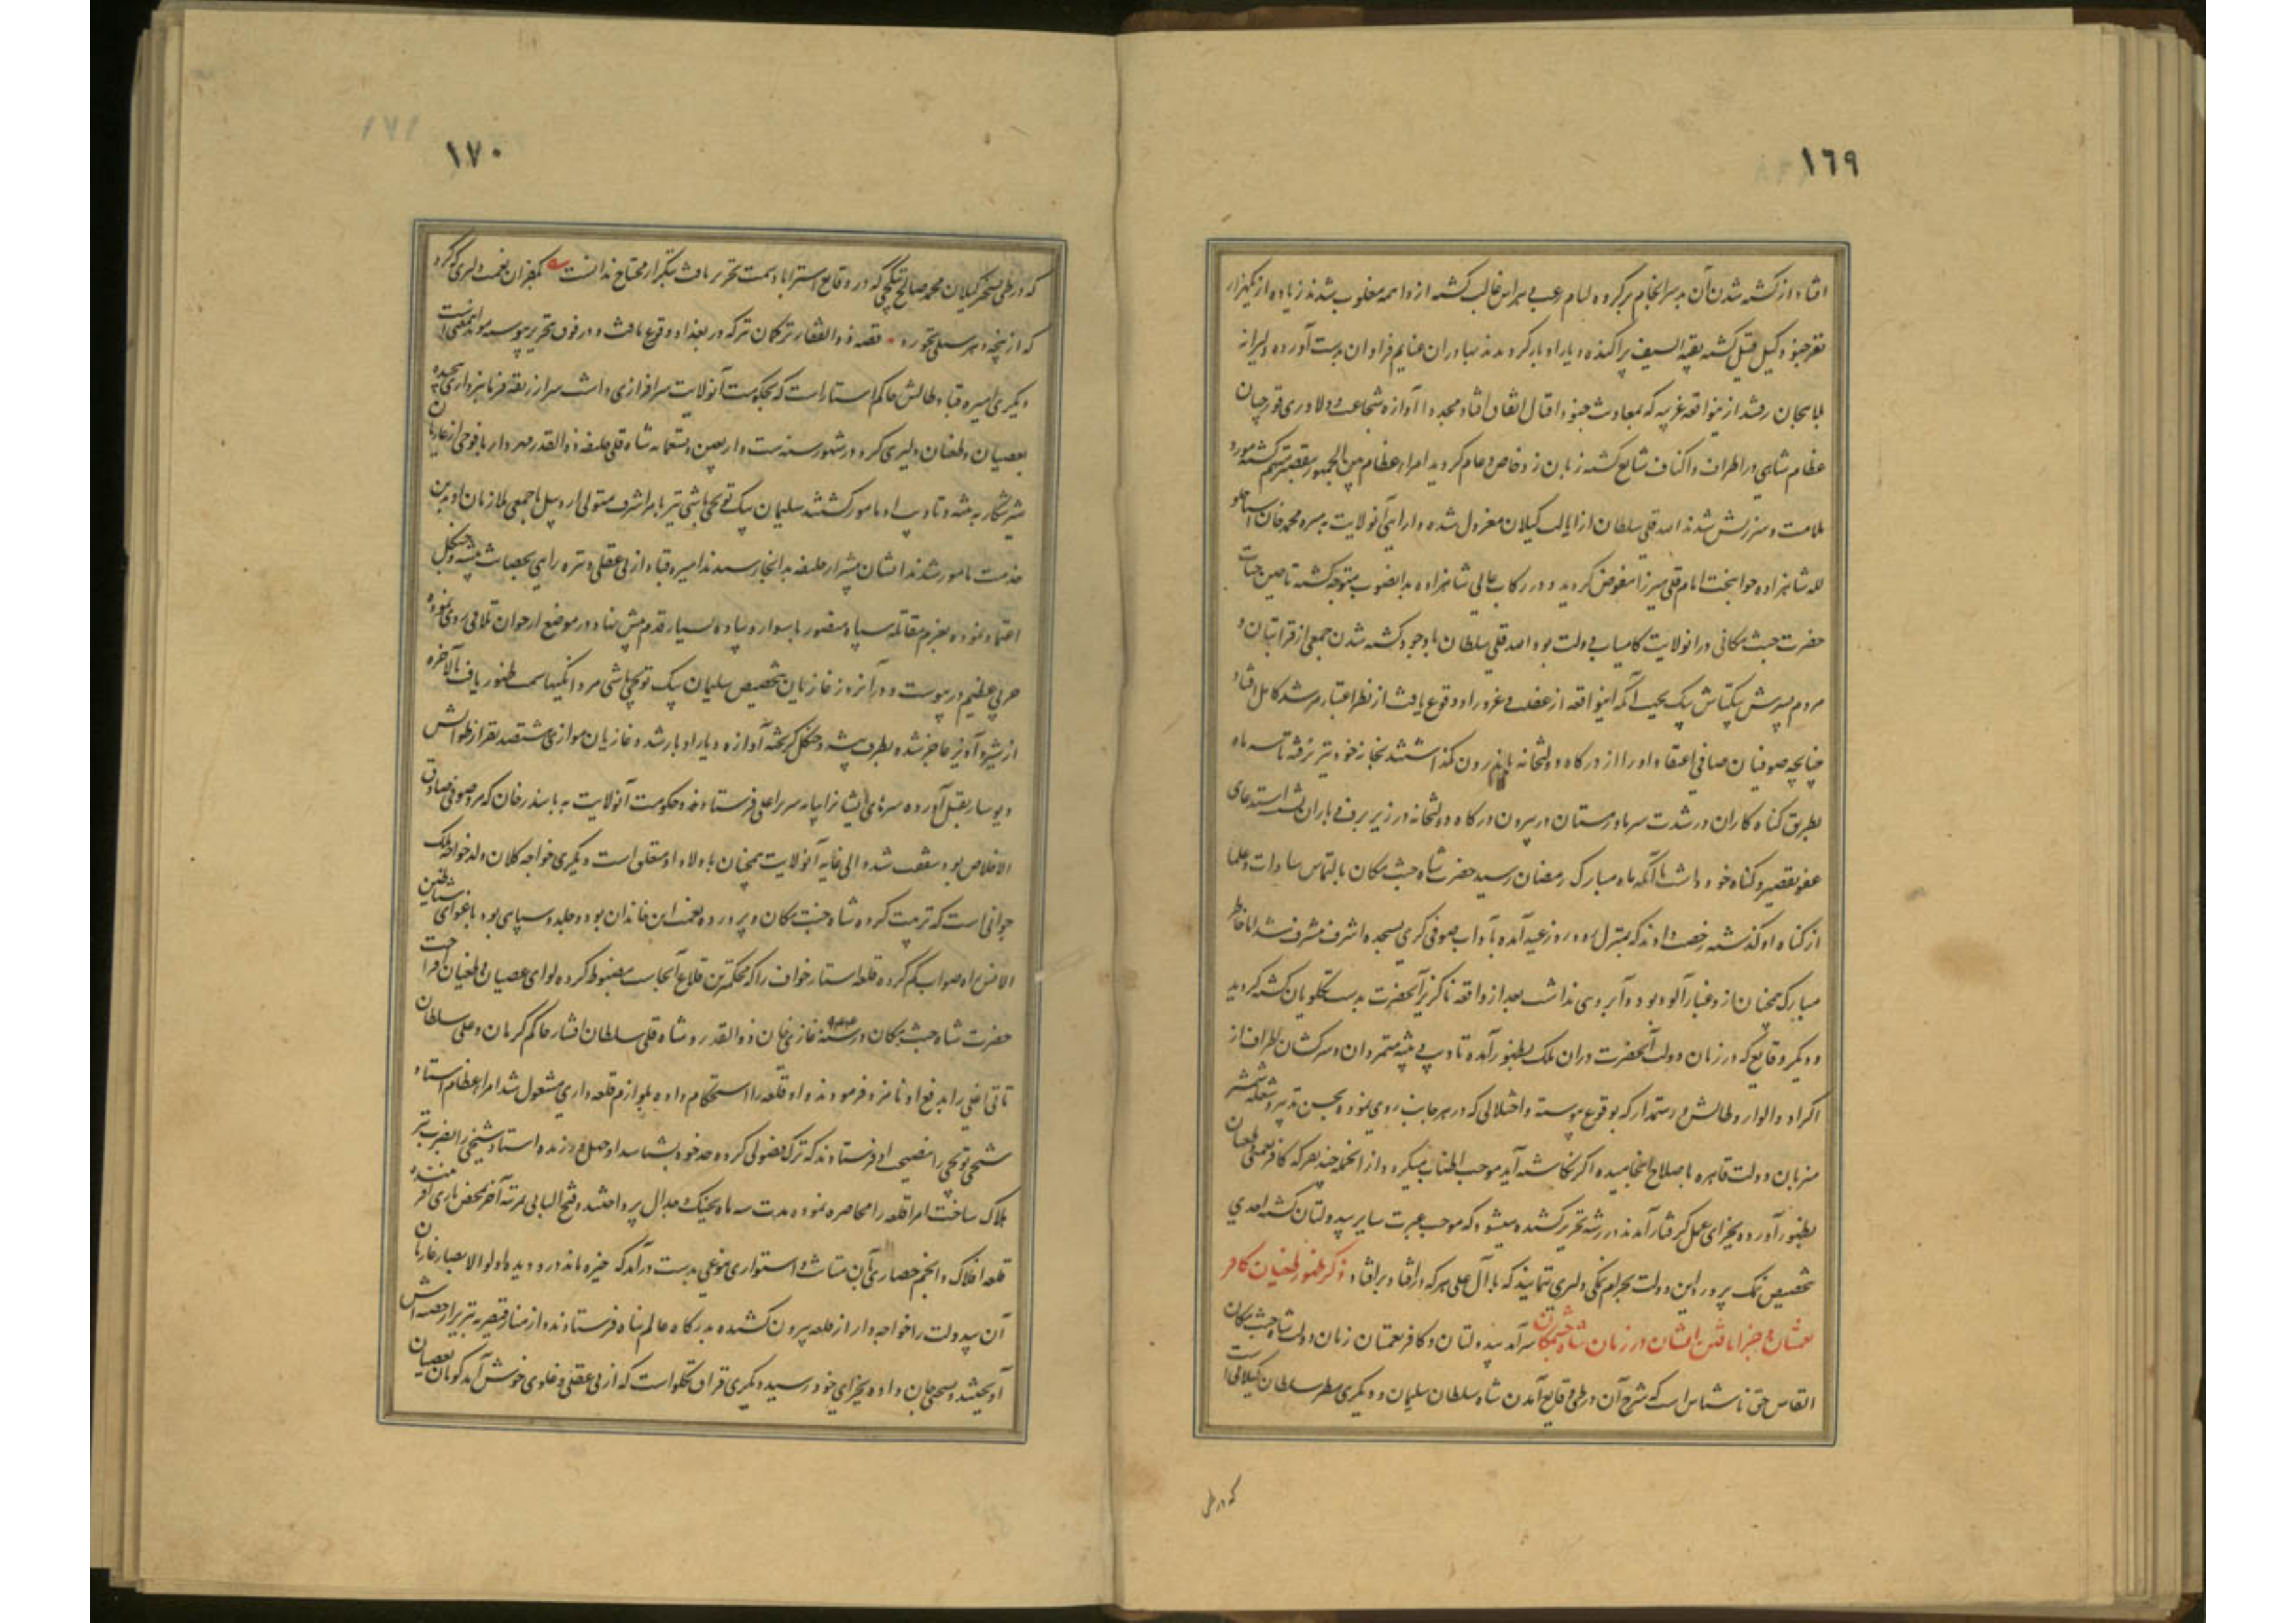 ١٦٩
افتاد از کشته شدن آن بدسرانجام بر گروه لئام رعب و هراس غالب گشته از واهمه مغلوب شدند زیاده از یکهزار
نفر جنود کیل قتیل گشته بقیه السیف پراکنده دیار ادبار گردیدند بهادران غنایم فراوان بدست آورده دلیرانه
بلاهجان رفتند از ینواقعه غریبه که بمعاونت جنود اقبال اتفاق افتاد مجددا آوازه شجاعت و دلاوری قورچیان
عظام شاهی در اطراف و اکناف شایع گشته زبان زد خاص و عام گردید امراء عظام بین الجمهور بتقصیر متهم گشته مورد
ملامت و سرزنش شدند الله قلی سلطان از ایالت گیلان معزول شده دارایی آنولایت به پیره محمد خان استاجلو
لله شاهزاده جوانبخت امام قلی میرزا مفوض گردید و در رکاب عالی شاهزاده بدانصوب متوجه گشته تا حین حیات
حضرت جنت مکانی در انولایت کامیاب دولت بود الله قلی سلطان با وجود کشته شدن جمعی از قرابتان و
مردم پسرش بیکتاش بیک بجهت آنکه اینواقعه از غفلت و غرور او وقوع یافت از نظر اعتبار مرشد کامل افتاد
چنانچه صوفیان صافی اعتقاد او را از درگاه دولتخانه باندرون نگذاشتند بخانه خود نیز نرفته تا سه ماه
بطریق گناه کاران در شدت سرما و زمستان در بیرون درگاه دولتخانه در زیر برف و باران نشسته استدعای
عفو تقصیر و گناه خود داشت تا آنکه ماه مبارک رمضان رسید حضرت شاه جنت مکان بالتماس سادات و علما
از گناه او گذشته رخصت دادند که بمنزل رود روز عید آمده بآداب صوفی گری بسجده اشرف مشرف شد اما خاطر
مبارک همچنان از و غبار آلود بود و آبروی نداشت بعد از واقعه ناگزیر آنحضرت بدست تکلویان کشته گردید
و دیگر وقایع که در زمان دولت آنحضرت در ان ملک بظهور آمده تادیب و تنبیه متمردان و سرکشان اطراف از
اکراد و الوار و طالش و رستمدار که بوقوع پیوسته و اختلالی که در هر جانب روی نموده بحسن تدبیر و شعله شمشیر
مرزبان دولت قاهره باصلاح انجامیده اگر نگاشته آید موجب اطناب میگردد از انجمله چند نفر که کافر نعمتی و طغیان
بظهور آورده بجزای عمل گرفتار آمدند در رشته تحریر کشیده میشود که موجب عبرت سایر بیدولتان گشته احدی
تخصیص نمک پرور این دولت بحرام نمکی دلیری ننمایند که با آل علی هر که در افتاد بر افتاد ذکر ظهور طغیان کافر
نعمتان و جزا یافتن ایشان در زمان شاه جنت مکان سرآمد بیدولتان و کافر نعمتان زمان دولت شاه جنت مکان
القاس حق ناشناس است که شرح آن در طی وقایع آمدن شاه سلطان سلیمان و دیگری مظفر سلطان گیلانی است
که در طی
١٧٠
که در طی تسخیر گیلان محمد صالح بتکچی که در وقایع استراباد سمت تحریر یافت بتکرار محتاج نداشت بکفران نعمت دلیری گر کرد
که از پنجه دهر سیلی نخورد قصه ذوالفقار ترکمان ترکه در بغداد وقوع یافت و در فوق تحریر پیوسته موید اینمعنی است
دیگری امیره قباد طالش حاکم استارا است که بحکومت آنولایت سرافرازی داشت سر از ربقه فرمانبرداری پیچیده
بعصیان و طغیان دلیری کرد در شهور سنه ست و اربعین و تسعمایه شاه قلی خلیفه ذوالقدر مهردار با فوجی از غازیان
شیر شکار به تنبیه و تادیب او مامور گشتند سلیمان بیک توپچی باشی نیز بامر اشرف متولی اردبیل با جمعی ملازمان او بدین
خدمت مامور شدند ایشان پیشتر از خلیفه بدانجا رسیدند امیره قباد از بی عقلی و تیره رایی بحصانت بیشه و جنگل
اعتماد نموده بعزم مقاتله سپاه منصور با سوار و پیاده بسیار قدم پیش نهاد در موضع ارجوان تلاقی روی نموده
حربی عظیم در پیوست و در آنروز غازیان بتخصیص سلیمان بیک توپچی باشی مردانگیها سمت ظهور یافت بالاخره
از ستیز و آویز عاجز شده بطرف بیشه و جنگل گریخته آواره دیار ادبار شد و غازیان موازی ششصد نفر از طوالش
دیو سار بقتل آورده سرهای ایشانرا بپایه سریر اعلی فرستادند و حکومت آنولایت به بایندر خان که مرد صوفی صادق
الاخلاص بود شفقت شد و الی غایه آنولایت همچنان باولاد او متعلق است دیگری خواجه کلان ولد خواجه ملک
خوافی است که تربیت کرده شاه جنت مکان و پرورده نعمت این خاندان بود و جلد و سپاهی بود باغوای شیاطین
الانس راه صواب گم کرده قلعه استاد خواف را که محکمترین قلاع آنجاست مضبوط کرده لوای عصیان و طغیان افراخت
حضرت شاه جنت مکان در سنه ٩٤٤ غازی خان ذوالقدر و شاه قلی سلطان افشار حاکم کرمان و علی سلطان
تاتی اغلی را بدفع او نامزد فرمودند و او قلعه را استحکام داده بلوازم قلعه داری مشغول شد امراء عظام استاد
شیخی توپچی را بنصیحت او فرستادند که ترک فضولی کرده حد خود بشناسد او جهل ورزیده استاد شیخی را بضرب تیر
هلاک ساخت امرا قلعه را محاصره نموده مدت سه ماه بجنگ و جدال پرداختند و فتح الباب میسر نشد آخر بمحض یاری آفریننده
قلعه افلاک و انجم حصاری بآن متانت و استواری بنوعی بدست درآمد که خیره ماند در و دیده اولو الابصار غازیان
آن بیدولت را خواجه وار از قلعه بیرون کشیده بدرگاه عالم پناه فرستادند و از منار قیصریه تبریز از خصیه اش
آویختند و بسختی جان داده بجزای خود رسید دیگری قراق تکلو است که از بی عقلی و غلوی خوش آمد گویان بعصیان